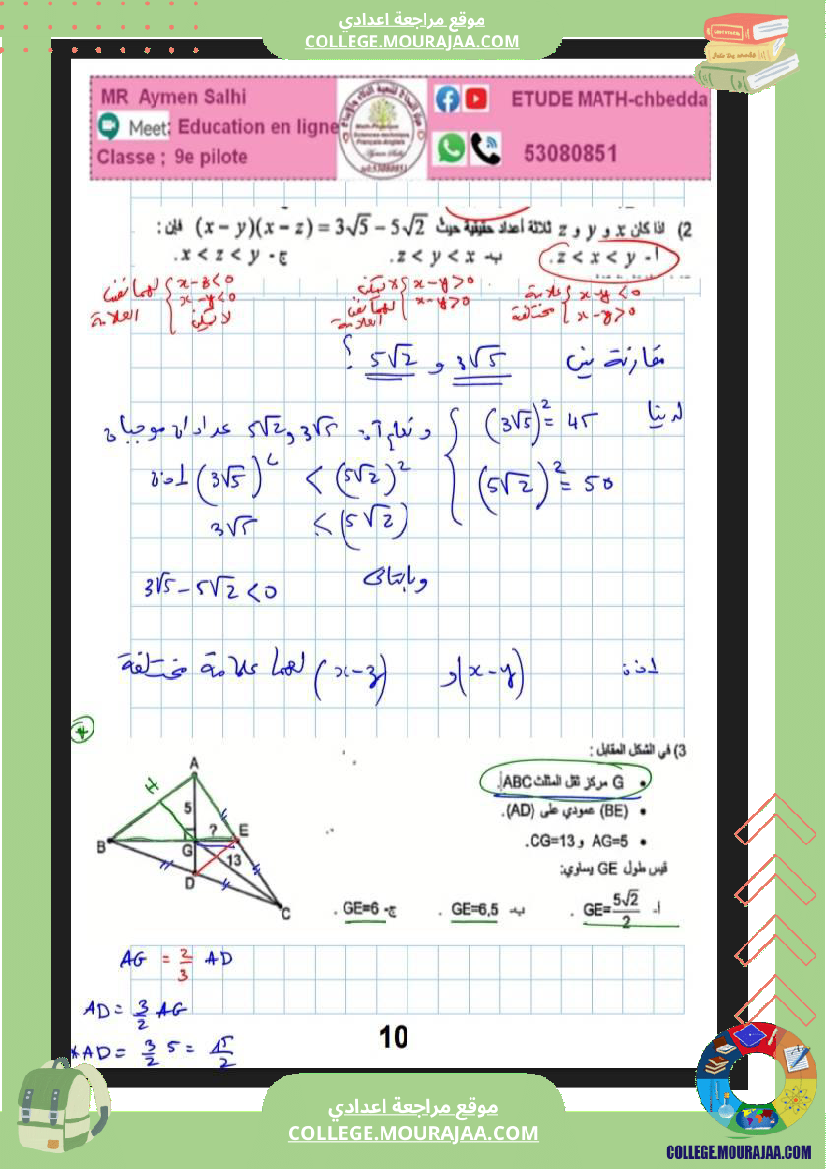 موقع مراجعة اعدادي
COLLEGE.MOURAJAA.COM
MR Aymen Salhi
Meet: Education en ligne
Classe ; 9e pilote
ETUDE MATH-chbedda
53080851
2) اذا كان x و y و z ثلاثة أعداد حقيقية حيث (x − y)(x − z) = 3√5 − 5√2 فإن :
أ- z < x < y . ب- z < y < x . ج- x < z < y .
x-z<0
x-y<0
لهما نفس العلامة
لا يمكن
لا يمكن
x-y>0
x-y>0
لهما نفس العلامة
علامة مختلفة
x-y<0
x-y>0
مقارنة بين 3√5 و 5√2 ؟
لدينا (3√5)²= 45
(5√2)²= 50
و نعلم أن 3√5 و 5√2 عددان موجبان
اذن (3√5)² < (5√2)²
3√5 < (5√2)
وبالتالي
3√5 - 5√2 <0
اذن (x-y) و (x-z) لهما علامة مختلفة
3) في الشكل المقابل :
• G مركز ثقل المثلث ABC.
• (BE) عمودي على (AD).
• AG=5 و CG=13.
قيس طول GE يساوي:
أ- GE=5√2/2 . ب- GE=6,5 . ج- GE=6 .
A
H
5
?
E
B
G
13
D
C
AG = 2/3 AD
AD = 3/2 AG
*AD = 3/2 5 = 15/2
10
موقع مراجعة اعدادي
COLLEGE.MOURAJAA.COM
COLLEGE.MOURAJAA.COM